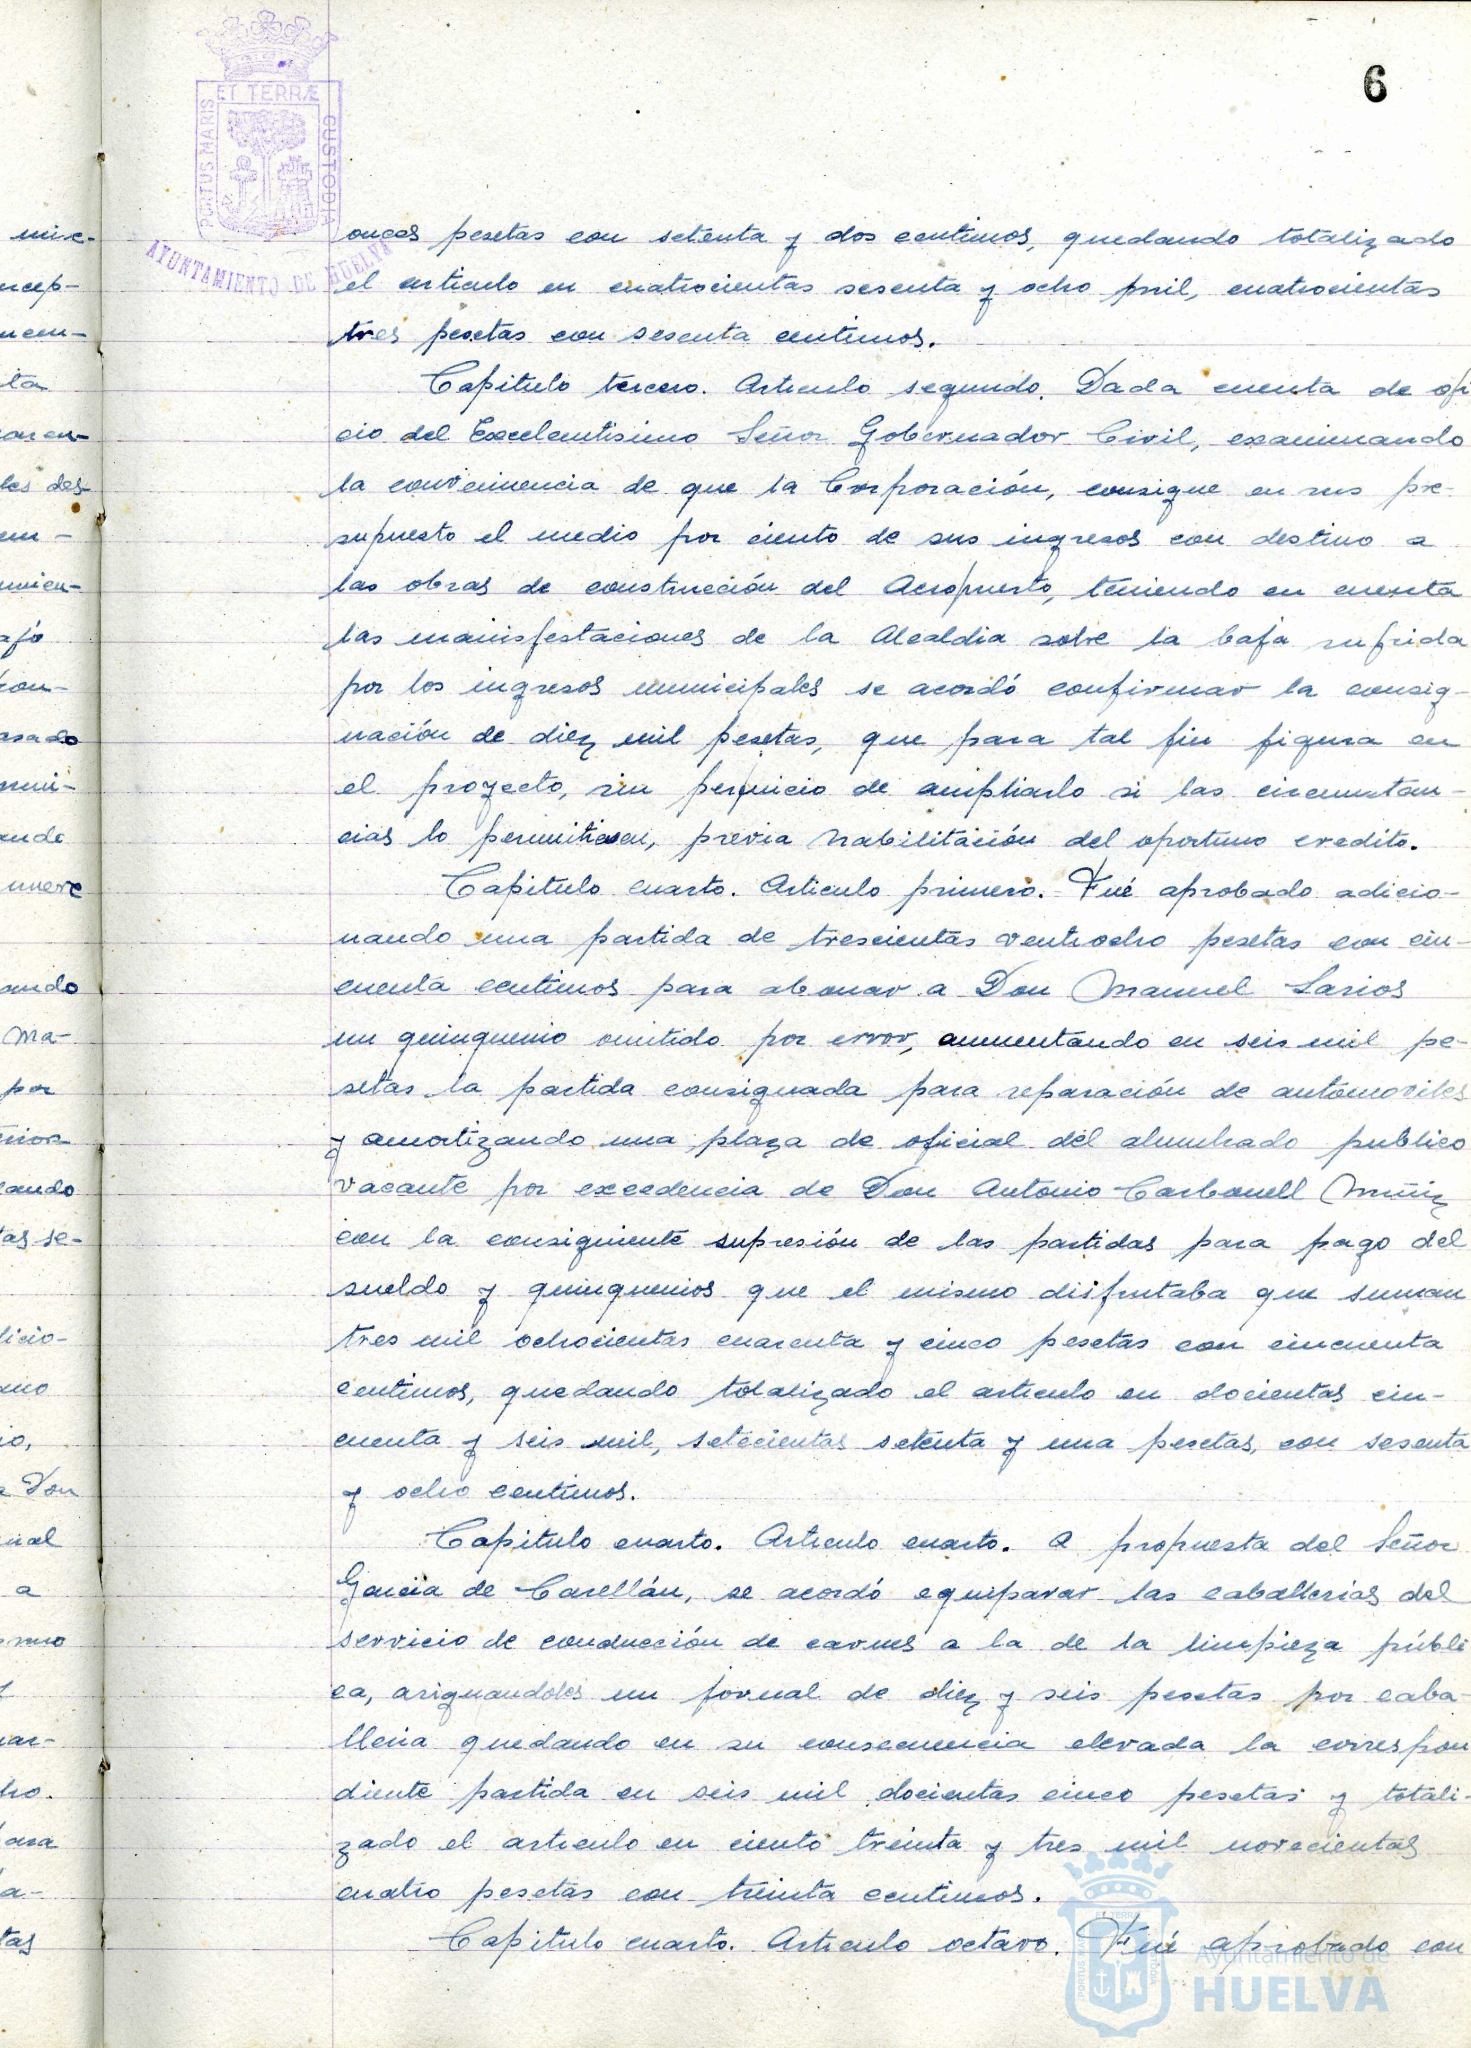 6
ET TERRÆ
PORTUS MARIS
CUSTODIA
AYUNTAMIENTO DE HUELVA
onces pesetas con setenta y dos centimos, quedando totalizado
el articulo en cuatrocientas sesenta y ocho mil, cuatrocientas
tres pesetas con sesenta centimos.
Capitulo tercero. Articulo segundo. Dada cuenta de ofi
cio del Excelentisimo Señor Gobernador Civil, examinando
la conveniencia de que la Corporación, consigne en sus pre-
supuesto el medio por ciento de sus ingresos con destino a
las obras de construcción del Aeropuerto, teniendo en cuenta
las manifestaciones de la Alcaldia sobre la baja sufrida
por los ingresos municipales se acordó confirmar la consig-
nación de diez mil pesetas, que para tal fin figura en
el proyecto, sin perjuicio de ampliarlo si las circunstan-
cias lo permitiesen, previa habilitación del oportuno credito.
Capitulo cuarto. Articulo primero.- Fué aprobado adicio-
nando una partida de trescientas ventiocho pesetas con cin-
cuenta centimos para abonar a Don Manuel Larios
un quinquenio omitido por error, aumentando en seis mil pe-
setas la partida consignada para reparación de automoviles
y amortizando una plaza de oficial del alumbrado publico
vacante por excedencia de Don Antonio Carbonell Muñiz
con la consiguiente supresión de las partidas para pago del
sueldo y quinquenios que el mismo disfrutaba que suman
tres mil ochocientas cuarenta y cinco pesetas con cincuenta
centimos, quedando totalizado el articulo en docientas cin-
cuenta y seis mil, setecientas setenta y una pesetas, con sesenta
y ocho centimos.
Capitulo cuarto. Articulo cuarto. A propuesta del Señor
Garcia de Casellán, se acordó equiparar las caballerias del
servicio de conducción de carnes a la de la limpieza públi
ca, asignandoles un jornal de diez y seis pesetas por caba-
lleria quedando en su consecuencia elevada la correspon
diente partida en seis mil docientas cinco pesetas y totali-
zado el articulo en ciento treinta y tres mil novecientas
cuatro pesetas con treinta centimos.
Capitulo cuarto. Articulo octavo. Fué aprobado con
Ayuntamiento de
HUELVA